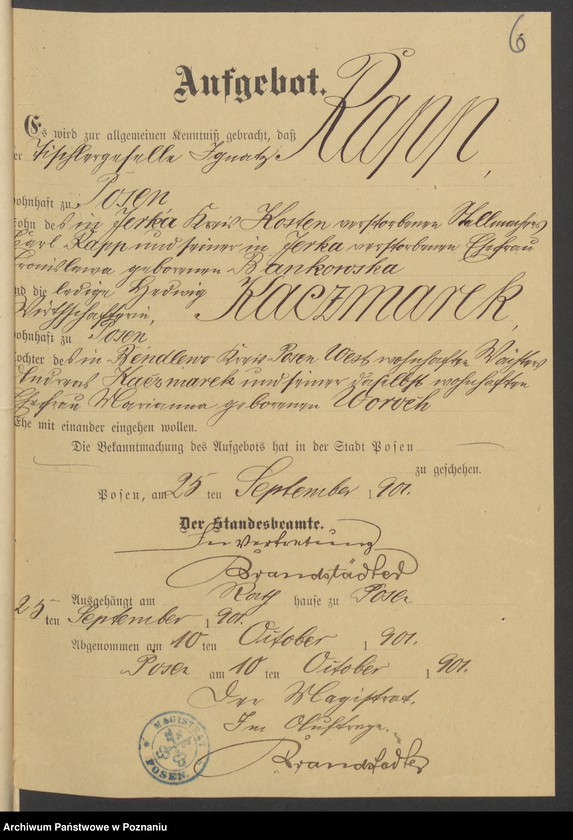 6
Aufgebot.
Es wird zur allgemeinen Kenntniß gebracht, daß
er Tischlergeselle Ignatz Rapp,
wohnhaft zu Posen
Sohn des in Jerka Kreis Kosten verstorbenen Stellmachers
Karl Rapp und seiner in Jerka verstorbenen Ehefrau
Bronislawa geborenen Bankowska
und die ledige Hedwig Kaczmarek,
Wirthschafterin,
wohnhaft zu Posen
Tochter des in Bendlewo Kreis Posen West wohnhaften
Andreas Kaczmarek und seiner daselbst wohnhaften
Ehefrau Marianna geborenen Woroch
Ehe mit einander eingehen wollen.
Die Bekanntmachung des Aufgebots hat in der Stadt Posen
zu geschehen.
Posen, am 25 ten September 1901.
Der Standesbeamte.
In Vertretung
Brandstädter
Ausgehängt am Rathhause zu Posen
25 ten September 1901.
Abgenommen am 10 ten October 1901.
Posen am 10 ten October 1901.
Der Magistrat.
Im Auftrage.
Brandstädter
MAGISTRAT
POSEN.
Archiwum Państwowe w Poznaniu